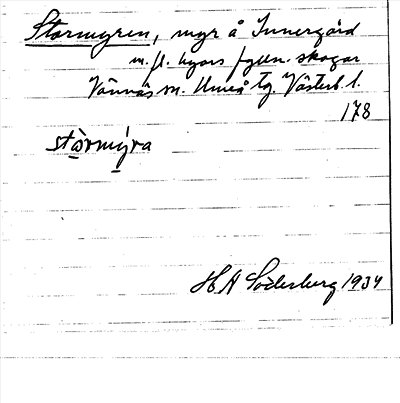 Stormyren, myr å Innergård
m. fl. byars fylln. skogar
Vännäs sn. Umeå tg. Västerb. l.
178
stòrmýra
H A Söderberg 1934